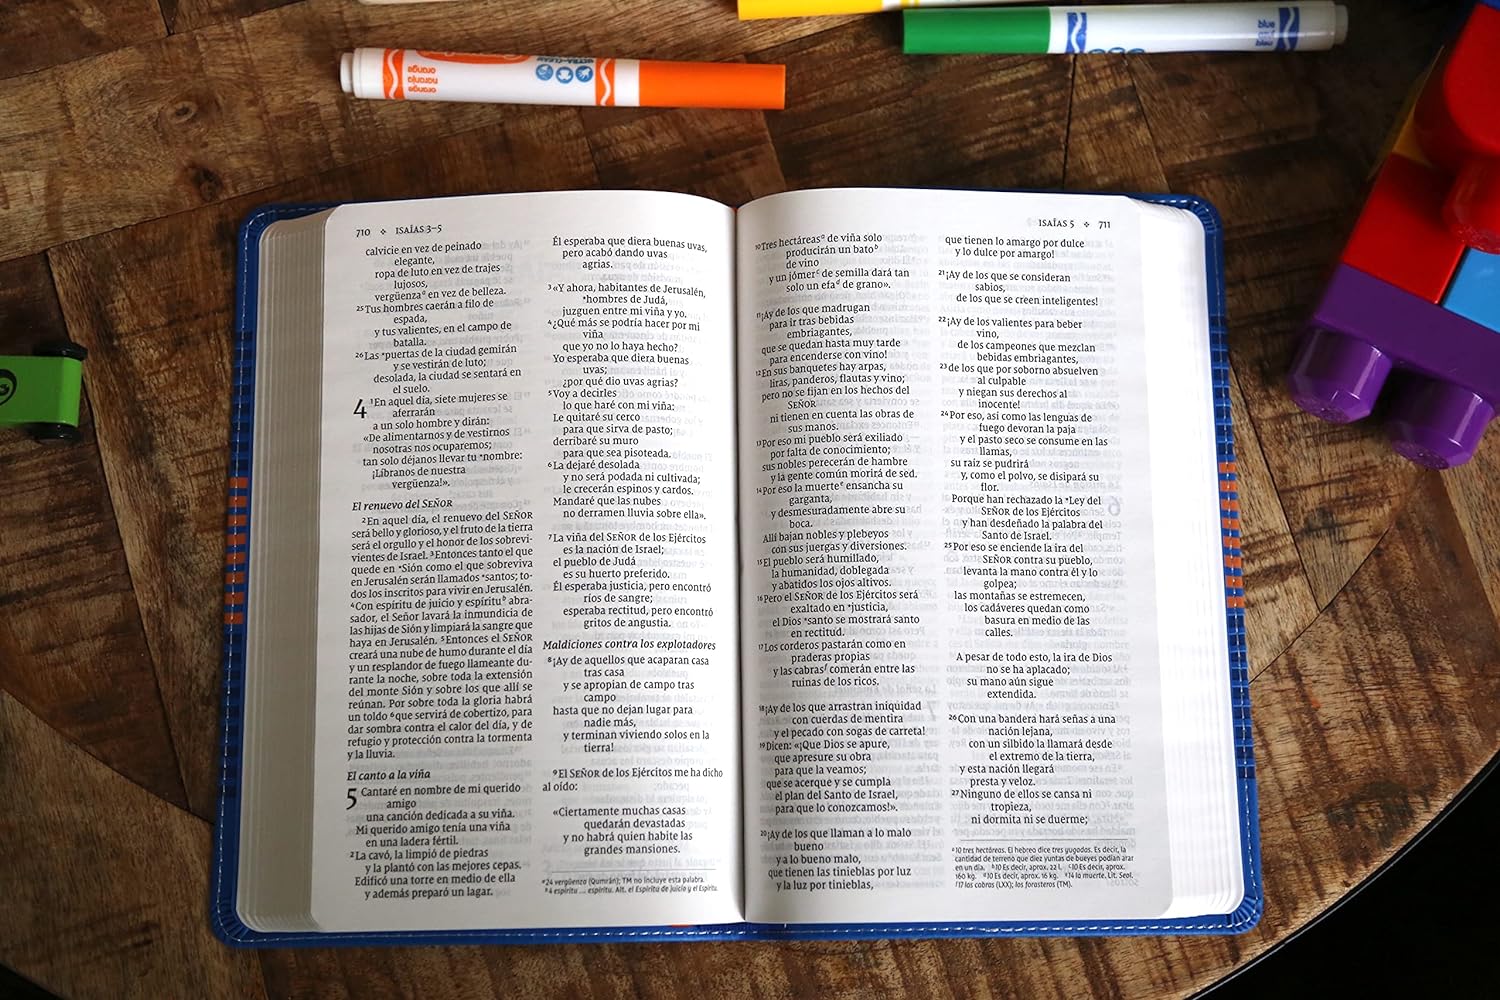 orange
naranja
orange
ULTRA-CLEAN
blue
bleu
710 ❖ ISAÍAS 3–5
calvicie en vez de peinado
elegante,
ropa de luto en vez de trajes
lujosos,
vergüenzaᵃ en vez de belleza.
25 Tus hombres caerán a filo de
espada,
y tus valientes, en el campo de
batalla.
26 Las *puertas de la ciudad gemirán
y se vestirán de luto;
desolada, la ciudad se sentará en
el suelo.
4 1 En aquel día, siete mujeres se
aferrarán
a un solo hombre y dirán:
«De alimentarnos y de vestirnos
nosotras nos ocuparemos;
tan solo déjanos llevar tu *nombre:
¡Líbranos de nuestra
vergüenza!».
El renuevo del SEÑOR
2 En aquel día, el renuevo del SEÑOR
será bello y glorioso, y el fruto de la tierra
será el orgullo y el honor de los sobrevi-
vientes de Israel. 3 Entonces tanto el que
quede en *Sión como el que sobreviva
en Jerusalén serán llamados *santos; to-
dos los inscritos para vivir en Jerusalén.
4 Con espíritu de juicio y espírituᵇ abra-
sador, el Señor lavará la inmundicia de
las hijas de Sión y limpiará la sangre que
haya en Jerusalén. 5 Entonces el SEÑOR
creará una nube de humo durante el día
y un resplandor de fuego llameante du-
rante la noche, sobre toda la extensión
del monte Sión y sobre los que allí se
reúnan. Por sobre toda la gloria habrá
un toldo 6 que servirá de cobertizo, para
dar sombra contra el calor del día, y de
refugio y protección contra la tormenta
y la lluvia.
El canto a la viña
5 Cantaré en nombre de mi querido
amigo
una canción dedicada a su viña.
Mi querido amigo tenía una viña
en una ladera fértil.
2 La cavó, la limpió de piedras
y la plantó con las mejores cepas.
Edificó una torre en medio de ella
y además preparó un lagar.
Él esperaba que diera buenas uvas,
pero acabó dando uvas
agrias.
3 «Y ahora, habitantes de Jerusalén,
*hombres de Judá,
juzguen entre mi viña y yo.
4 ¿Qué más se podría hacer por mi
viña
que yo no lo haya hecho?
Yo esperaba que diera buenas
uvas;
¿por qué dio uvas agrias?
5 Voy a decirles
lo que haré con mi viña:
Le quitaré su cerco
para que sirva de pasto;
derribaré su muro
para que sea pisoteada.
6 La dejaré desolada
y no será podada ni cultivada;
le crecerán espinos y cardos.
Mandaré que las nubes
no derramen lluvia sobre ella».
7 La viña del SEÑOR de los Ejércitos
es la nación de Israel;
el pueblo de Judá
es su huerto preferido.
Él esperaba justicia, pero encontró
ríos de sangre;
esperaba rectitud, pero encontró
gritos de angustia.
Maldiciones contra los explotadores
8 ¡Ay de aquellos que acaparan casa
tras casa
y se apropian de campo tras
campo
hasta que no dejan lugar para
nadie más,
y terminan viviendo solos en la
tierra!
9 El SEÑOR de los Ejércitos me ha dicho
al oído:
«Ciertamente muchas casas
quedarán devastadas
y no habrá quien habite las
grandes mansiones.
ᵃ 24 vergüenza (Qumrán); TM no incluye esta palabra.
ᵇ 4 espíritu ... espíritu. Alt. el Espíritu de juicio y el Espíritu.
ISAÍAS 5 ❖ 711
10 Tres hectáreasᵃ de viña solo
producirán un batoᵇ
de vino
y un jómerᶜ de semilla dará tan
solo un efaᵈ de grano».
11 ¡Ay de los que madrugan
para ir tras bebidas
embriagantes,
que se quedan hasta muy tarde
para encenderse con vino!
12 En sus banquetes hay arpas,
liras, panderos, flautas y vino;
pero no se fijan en los hechos del
SEÑOR
ni tienen en cuenta las obras de
sus manos.
13 Por eso mi pueblo será exiliado
por falta de conocimiento;
sus nobles perecerán de hambre
y la gente común morirá de sed.
14 Por eso la muerteᵉ ensancha su
garganta,
y desmesuradamente abre su
boca.
Allí bajan nobles y plebeyos
con sus juergas y diversiones.
15 El pueblo será humillado,
la humanidad, doblegada
y abatidos los ojos altivos.
16 Pero el SEÑOR de los Ejércitos será
exaltado en *justicia,
el Dios *santo se mostrará santo
en rectitud.
17 Los corderos pastarán como en
praderas propias
y las cabrasᶠ comerán entre las
ruinas de los ricos.
18 ¡Ay de los que arrastran iniquidad
con cuerdas de mentira
y el pecado con sogas de carreta!
19 Dicen: «¡Que Dios se apure,
que apresure su obra
para que la veamos;
que se acerque y se cumpla
el plan del Santo de Israel,
para que lo conozcamos!».
20 ¡Ay de los que llaman a lo malo
bueno
y a lo bueno malo,
que tienen las tinieblas por luz
y la luz por tinieblas,
que tienen lo amargo por dulce
y lo dulce por amargo!
21 ¡Ay de los que se consideran
sabios,
de los que se creen inteligentes!
22 ¡Ay de los valientes para beber
vino,
de los campeones que mezclan
bebidas embriagantes,
23 de los que por soborno absuelven
al culpable
y niegan sus derechos al
inocente!
24 Por eso, así como las lenguas de
fuego devoran la paja
y el pasto seco se consume en las
llamas,
su raíz se pudrirá
y, como el polvo, se disipará su
flor.
Porque han rechazado la *Ley del
SEÑOR de los Ejércitos
y han desdeñado la palabra del
Santo de Israel.
25 Por eso se enciende la ira del
SEÑOR contra su pueblo,
levanta la mano contra él y lo
golpea;
las montañas se estremecen,
los cadáveres quedan como
basura en medio de las
calles.
A pesar de todo esto, la ira de Dios
no se ha aplacado;
su mano aún sigue
extendida.
26 Con una bandera hará señas a una
nación lejana,
con un silbido la llamará desde
el extremo de la tierra,
y esta nación llegará
presta y veloz.
27 Ninguno de ellos se cansa ni
tropieza,
ni dormita ni se duerme;
ᵃ 10 tres hectáreas. El hebreo dice tres yugadas. Es decir, la
cantidad de terreno que diez yuntas de bueyes podían arar
en un día. ᵇ 10 Es decir, aprox. 22 l. ᶜ 10 Es decir, aprox.
160 kg. ᵈ 10 Es decir, aprox. 16 kg. ᵉ 14 la muerte. Lit. Seol.
ᶠ 17 las cabras (LXX); los forasteros (TM).